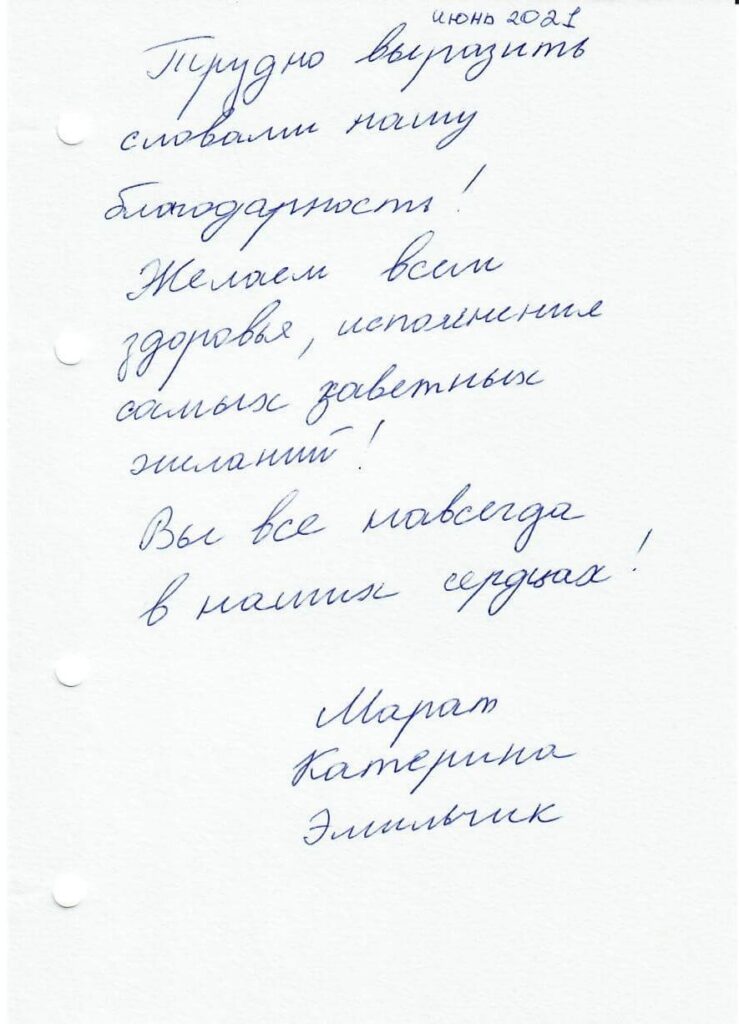 июнь 2021
Трудно выразить
словами нашу
благодарность!
Желаем всем
здоровья, исполнения
самых заветных
желаний!
Вы все навсегда
в наших сердцах!
Марат
Катерина
Эмильчик